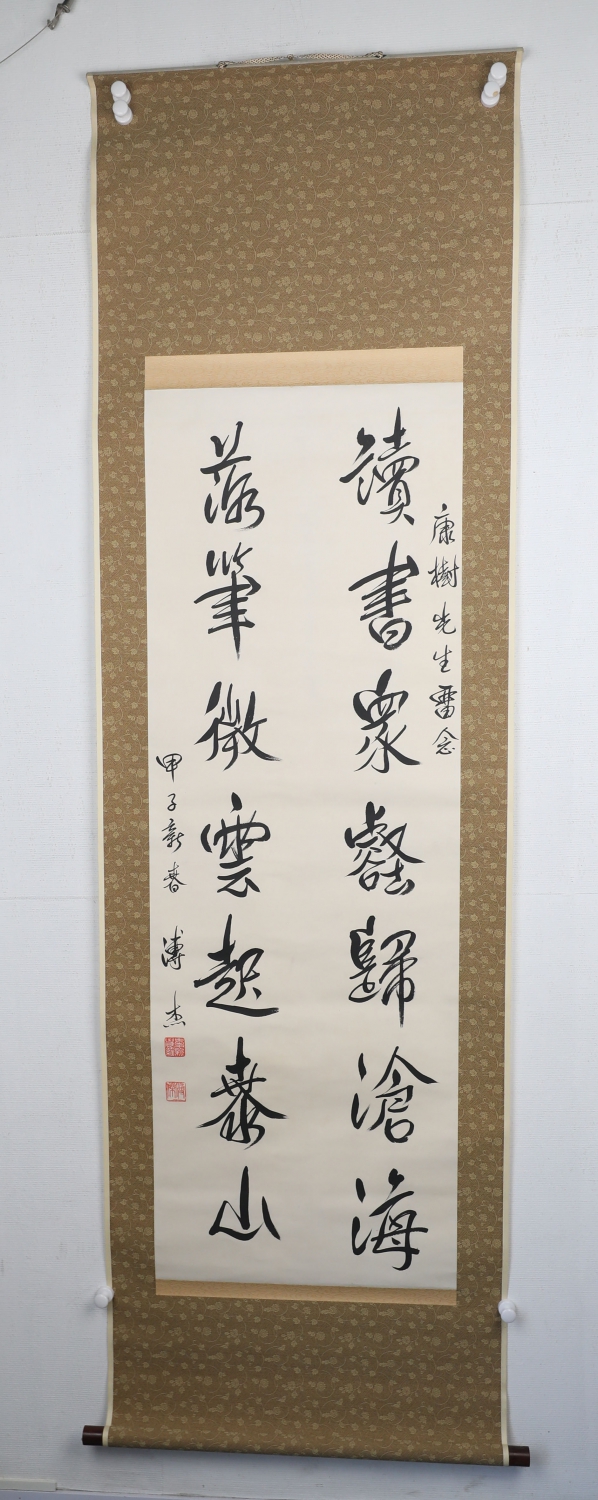 康樹先生畱念
讀書衆壑歸滄海
落筆微雲起泰山
甲子新春 溥杰